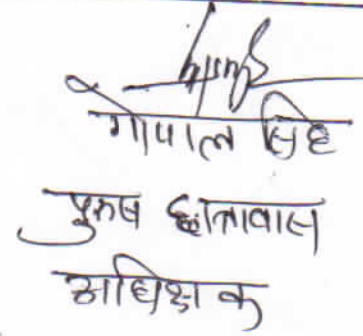 गोपाल सिंह
पुरुष छात्रावास
अधिक्षक